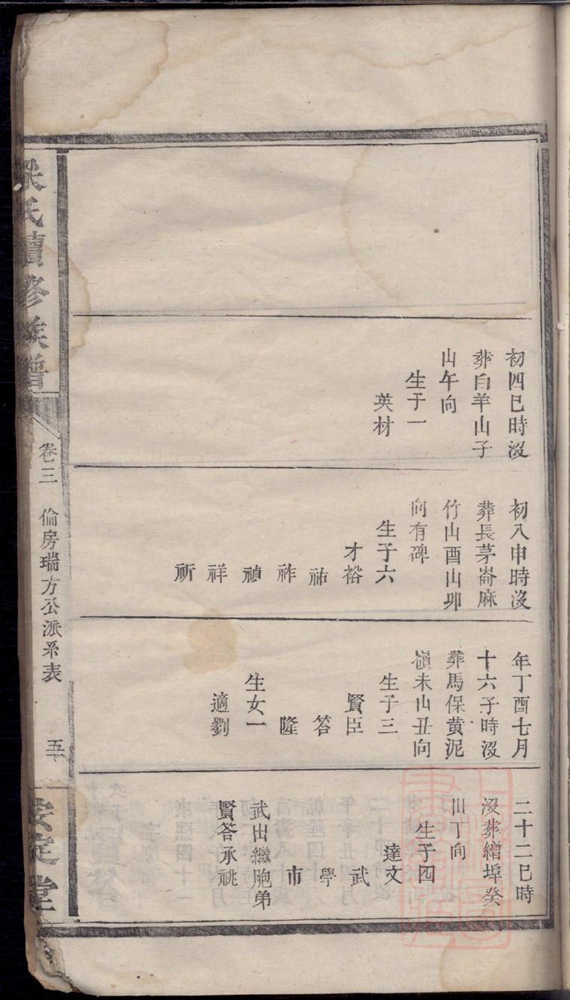 初四巳時沒
葬白羊山子
山午向
生子一
英材
初八申時沒
葬長茅崙麻
竹山酉山卯
向有碑
生子六
才裕
祐
祚
禎
祥
祈
年丁酉七月
十六子時沒
葬馬保黄泥
嶺未山丑向
生子三
賢臣
答
隆
生女一
適劉
二十二巳時
沒葬繒埠癸
山丁向
生子四
達文
武
學
市
武出繼胞弟
賢答承祧
氏續修族譜
卷三
倫房瑞方公派系表
五
安定堂